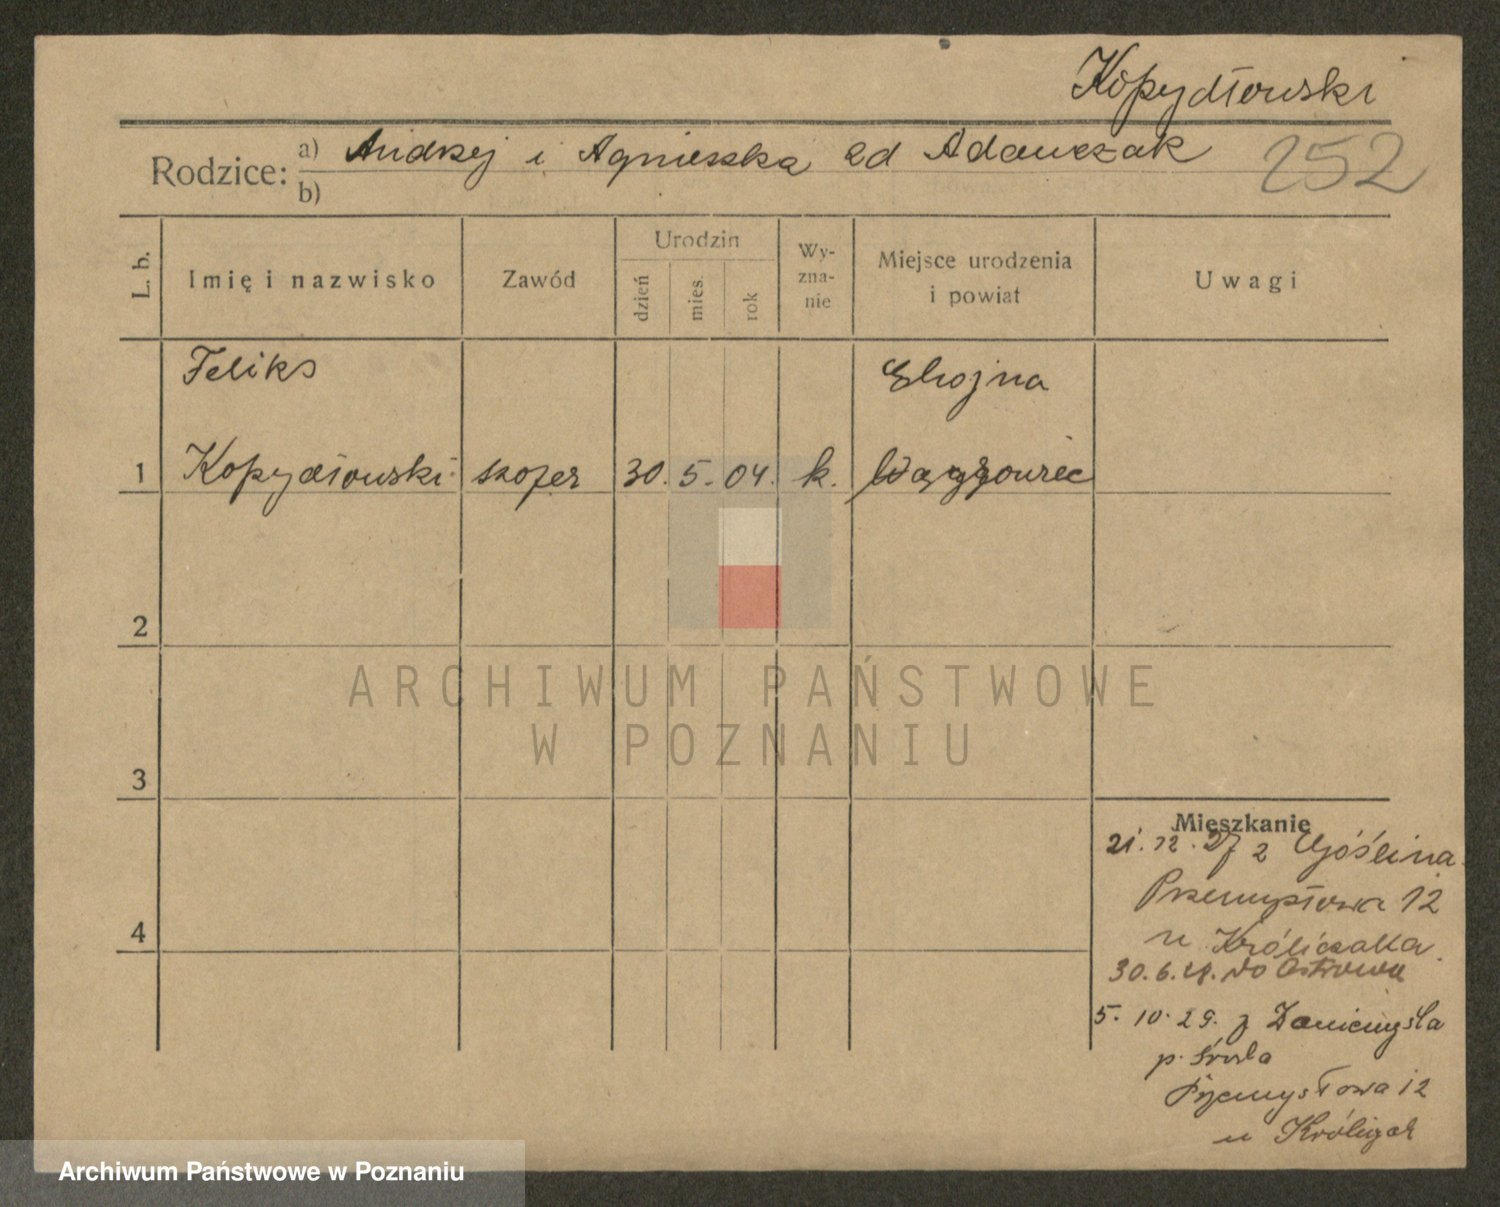 Kopydłowski
Rodzice: a) Andrzej i Agnieszka zd Adamczak 252
b)
L. b. Imię i nazwisko Zawód Urodzin dzień mies. rok Wy-
zna-
nie Miejsce urodzenia
i powiat Uwagi
Feliks Chojna
1 Kopydłowski szofer 30. 5. 04. k. Wągrowiec
2
3
4
Mieszkanie
21.12.27 z Goślina
Przemysłowa 12
u Króliczaka.
30.6.28. do Ostrowa
5. 10. 29. z Zaniemyśla
p. Środa
Przemysłowa 12
u Króliczak
ARCHIWUM PAŃSTWOWE
W POZNANIU
Archiwum Państwowe w Poznaniu